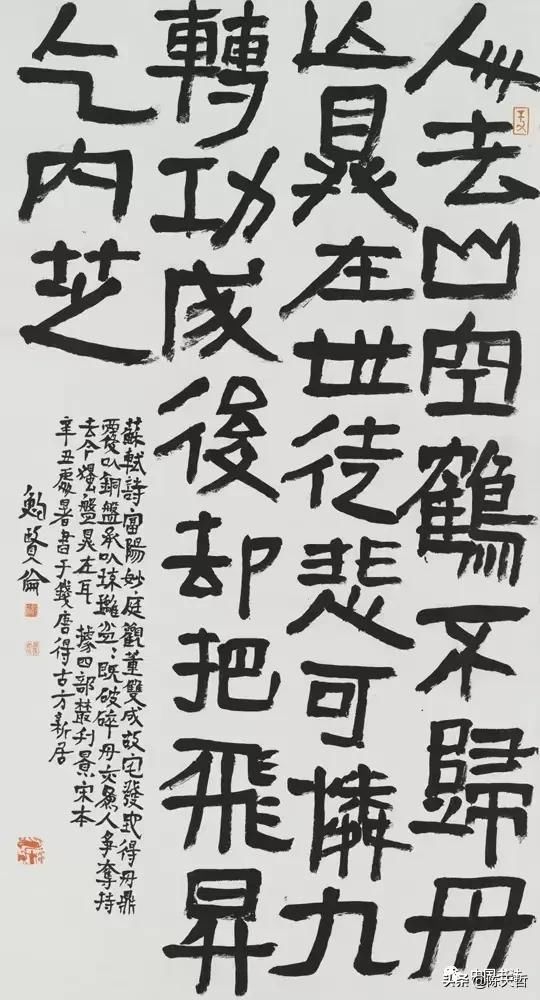 人去山空鶴不歸丹
亾鼎在世徒悲可憐九
轉功成後却把飛昇
乞内芝
蘇軾詩富陽妙庭觀董雙成故宅發地得丹鼎
覆以銅盤承以琉璃盆〻既破碎丹亦為人爭奪持
去今獨盤鼎在耳 據四部叢刊景宋本
辛丑處暑書于錢唐得古方新居
鮑賢倫
中国书法
头条 @陈天哲